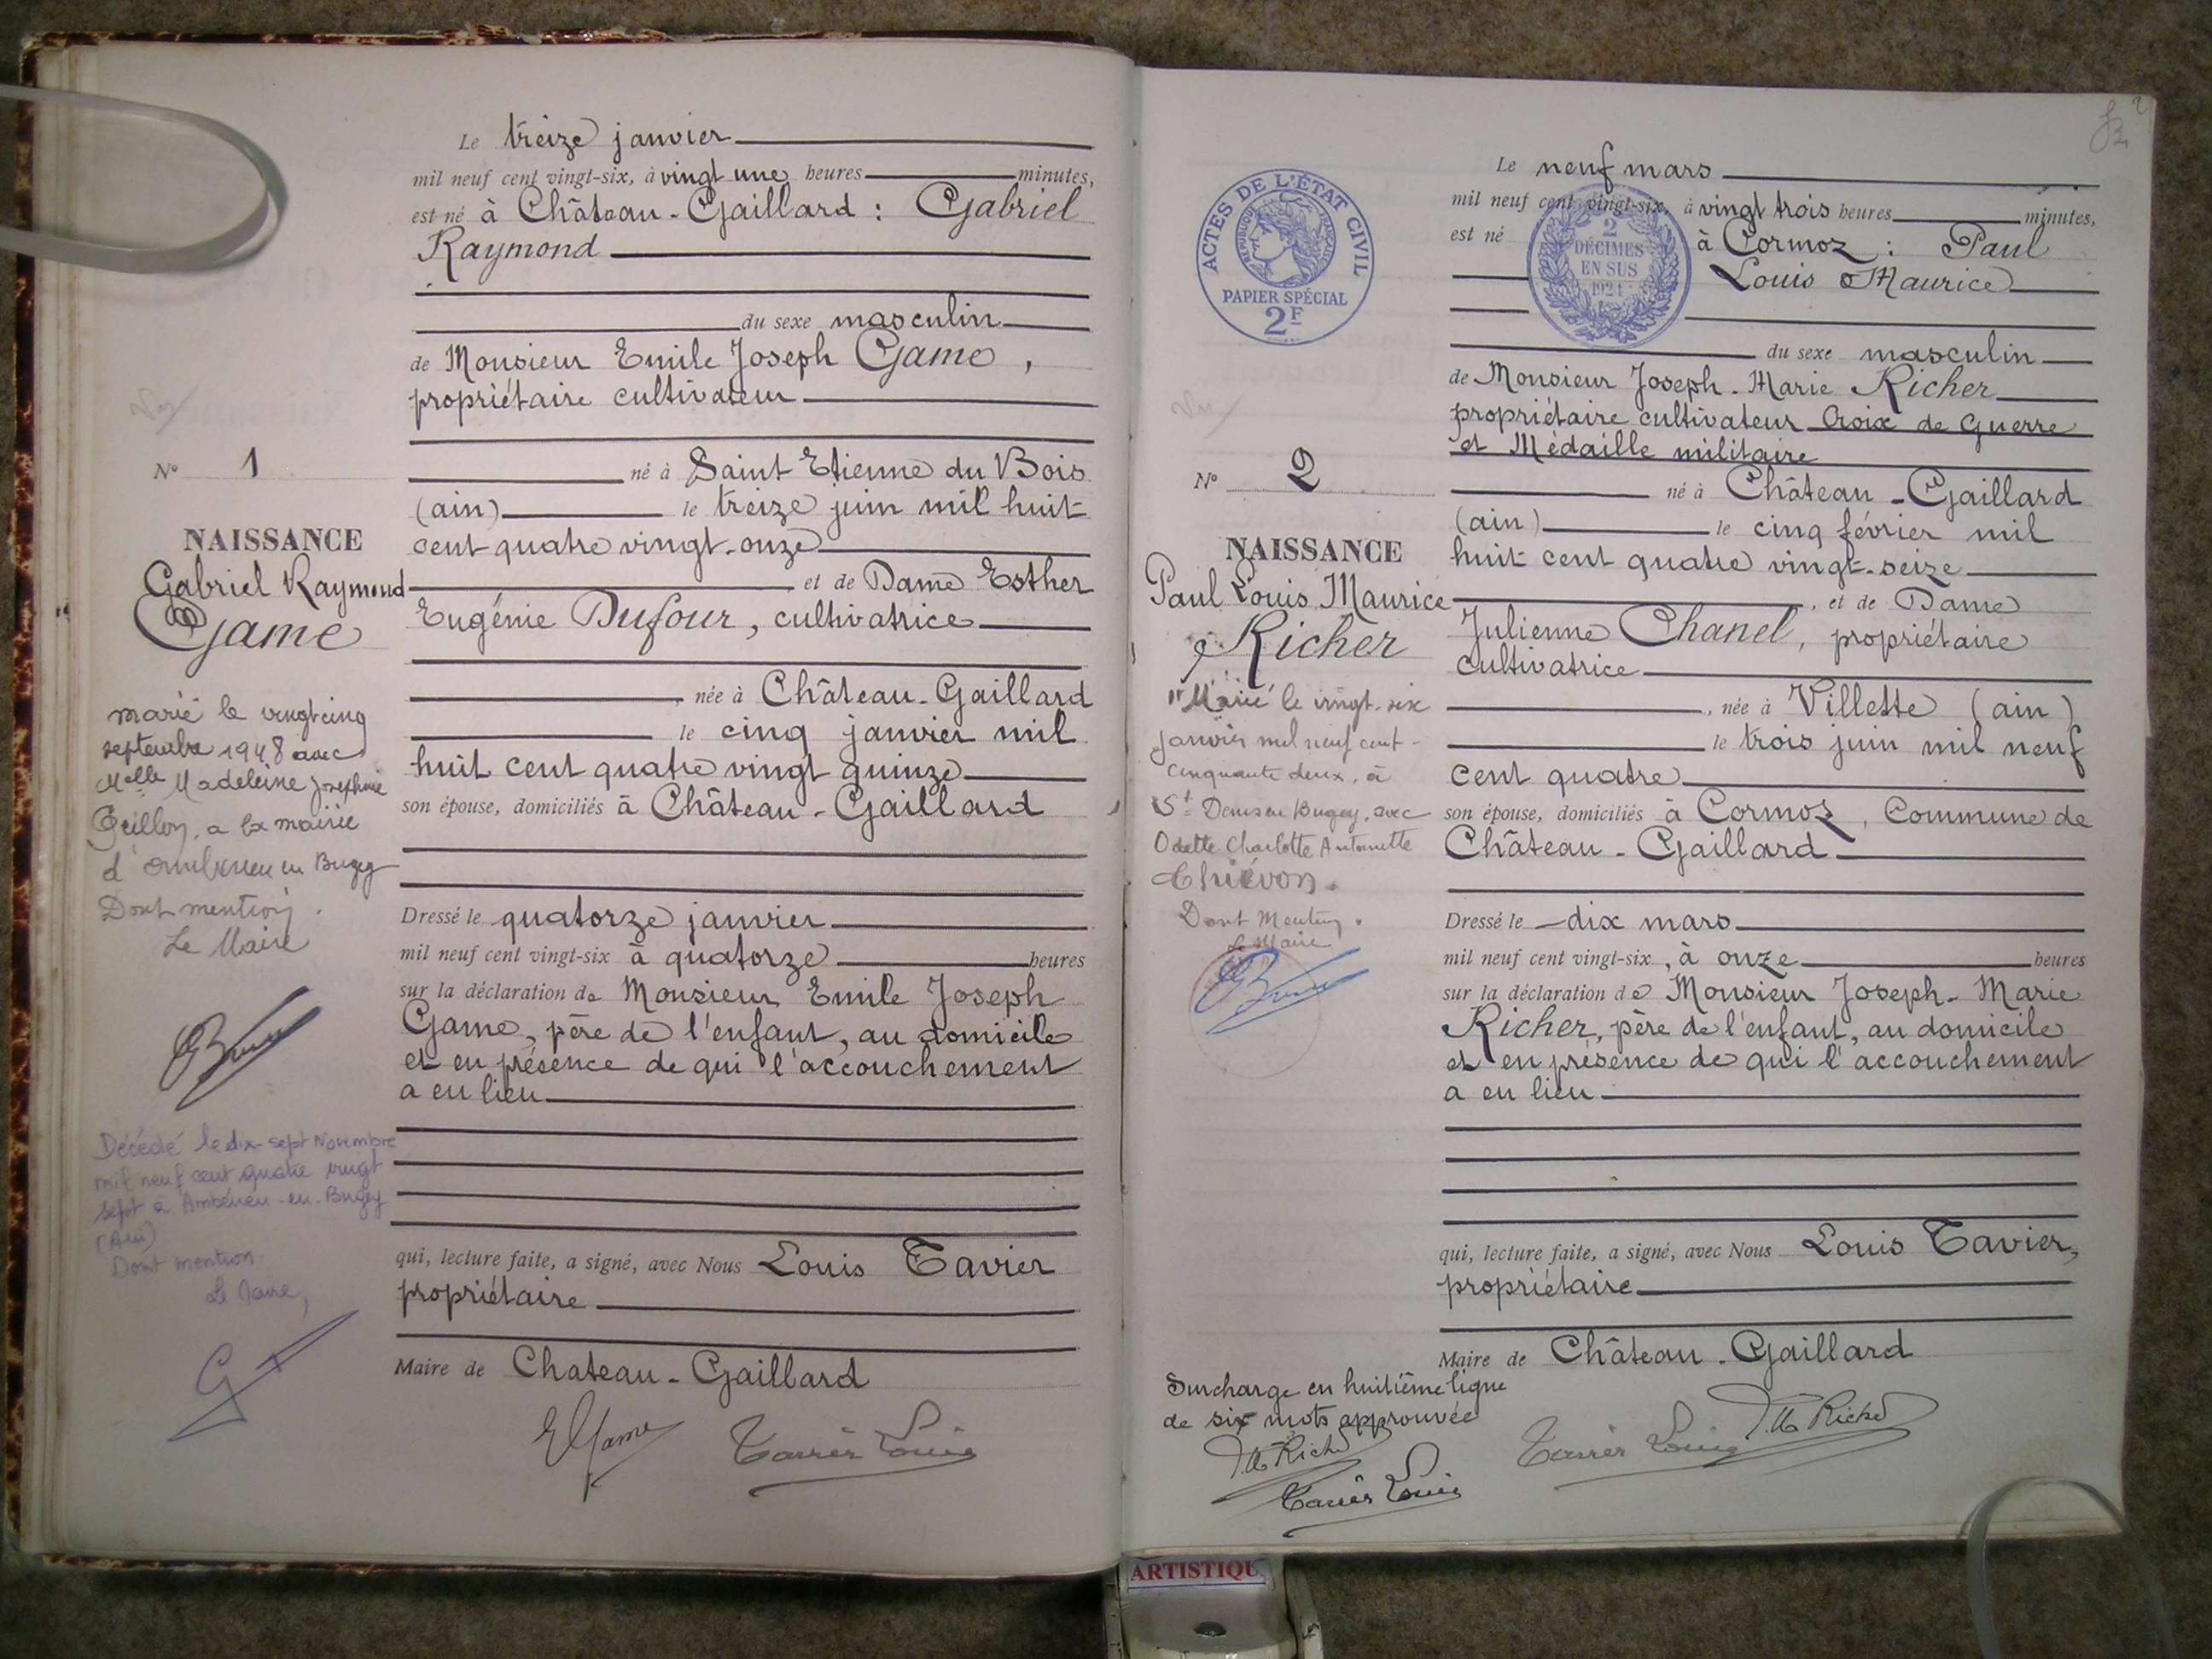 Le treize janvier
mil neuf cent vingt-six, à vingt une heures minutes,
est né à Château-Gaillard : Gabriel
Raymond
du sexe masculin
de Monsieur Emile Joseph Game,
propriétaire cultivateur
né à Saint Etienne du Bois
(ain) le treize juin mil huit
cent quatre vingt-onze
et de Dame Esther
Eugénie Dufour, cultivatrice
née à Château-Gaillard
le cinq janvier mil
huit cent quatre vingt quinze
son épouse, domiciliés à Château-Gaillard
Dressé le quatorze janvier
mil neuf cent vingt-six à quatorze heures
sur la déclaration de Monsieur Emile Joseph
Game, père de l'enfant, au domicile
et en présence de qui l'accouchement
a eu lieu
qui, lecture faite, a signé, avec Nous Louis Tavier
propriétaire
Maire de Chateau-Gaillard
EGame Tavier Louis
Vu
N° 1
NAISSANCE
Gabriel Raymond
Game
marié le vingt cinq
septembre 1948 avec
Melle Madeleine Joséphine
a la mairie
d'Ambérieu en Bugey
Dont mention.
Le Maire
Décédé le dix-sept Novembre
mil neuf cent quatre vingt
sept à Ambérieu-en-Bugey
(Ain)
Dont mention.
Le Maire,
2
ACTES DE L'ÉTAT CIVIL
RÉPUBLIQUE FRANÇAISE
PAPIER SPÉCIAL
2F
2
DÉCIMES
EN SUS
1924
Le neuf mars
mil neuf cent vingt-six, à vingt trois heures minutes,
est né à Cormoz : Paul
Louis Maurice
du sexe masculin
de Monsieur Joseph-Marie Richer
propriétaire cultivateur Croix de Guerre
et Médaille militaire
né à Château-Gaillard
(ain) le cinq février mil
huit cent quatre vingt-seize
, et de Dame
Julienne Chanel, propriétaire
cultivatrice
, née à Villette (ain)
le trois juin mil neuf
cent quatre
son épouse, domiciliés à Cormoz, Commune de
Château-Gaillard
Dressé le dix mars
mil neuf cent vingt-six, à onze heures
sur la déclaration de Monsieur Joseph-Marie
Richer, père de l'enfant, au domicile
et en présence de qui l'accouchement
a eu lieu
qui, lecture faite, a signé, avec Nous Louis Tavier,
propriétaire
Maire de Château-Gaillard
Tavier Louis J.M Richer
Vu
N° 2
NAISSANCE
Paul Louis Maurice
Richer
Marié le vingt-six
janvier mil neuf cent-
cinquante deux, à
St Denis en Bugey, avec
Odette Charlotte Antoinette
Dont Mention.
Le Maire
Surcharge en huitième ligne
de six mots approuvée
J.M Richer
Tavier Louis
ARTISTIQU